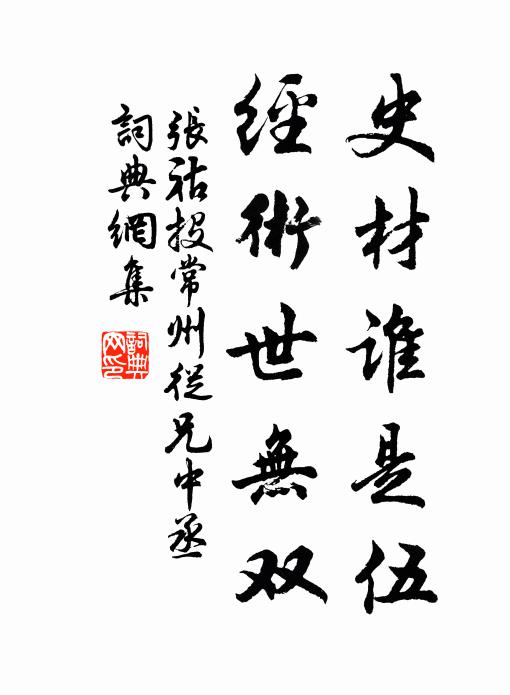 史材谁是伍
經術世無双
張祜投常州從兄中丞
詞典網集
詞典网印